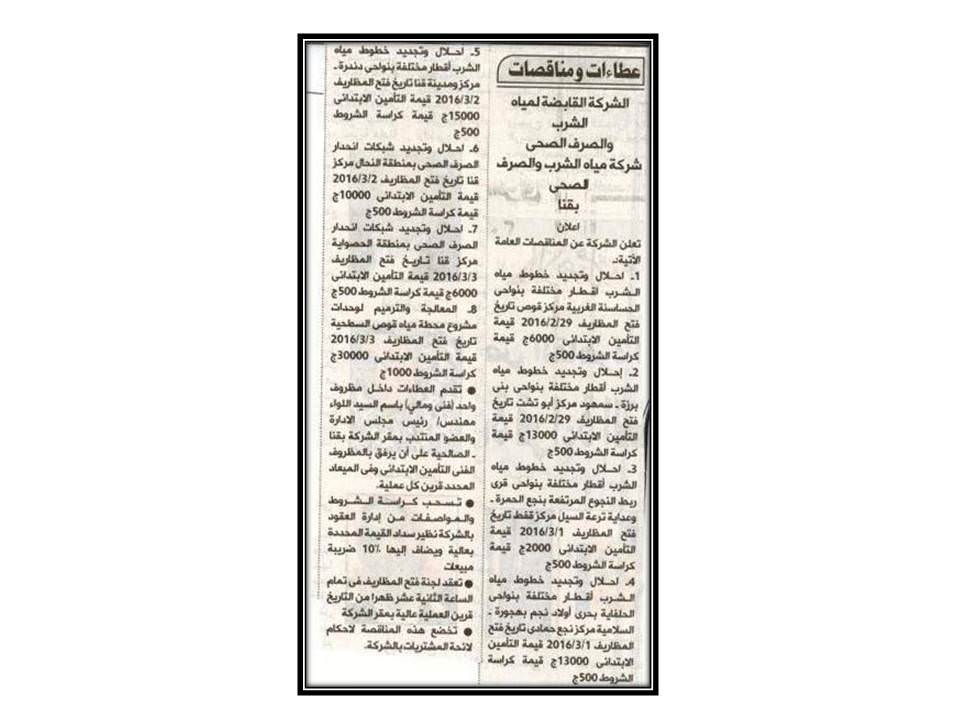 عطاءات ومناقصات
الشركة القابضة لمياه
الشرب
والصرف الصحى
شركة مياه الشرب والصرف
الصحى
بقنا
اعلان
تعلن الشركة عن المناقصات العامة
الأتية:ـ
1ـ احلال وتجديد خطوط مياه
الشرب اقطار مختلفة بنواحى
الحساسنة الغربية مركز قوص تاريخ
فتح المظاريف 2016/2/29 قيمة
التأمين الابتدائى 6000ج قيمة
كراسة الشروط 500ج
2ـ إحلال وتجديد خطوط مياه
الشرب أقطار مختلفة بنواحى بنى
برزة ـ سمهود مركز أبو تشت تاريخ
فتح المظاريف 2016/2/29 قيمة
التأمين الابتدائى 13000ج قيمة
كراسة الشروط 500ج
3ـ احلال وتجديد خطوط مياه
الشرب أقطار مختلفة بنواحى قرى
ربط النجوع المرتفعة بنجع الحمرة ـ
وعداية ترعة السيل مركز قفط تاريخ
فتح المظاريف 2016/3/1 قيمة
التأمين الابتدائى 2000ج قيمة
كراسة الشروط 500ج
4ـ احلال وتجديد خطوط مياه
الشرب أقطار مختلفة بنواحى
الحلفاية بحرى أولاد نجم بهجورة ـ
السلامية مركز نجع حمادى تاريخ فتح
المظاريف 2016/3/1 قيمة التأمين
الابتدائى 13000ج قيمة كراسة
الشروط 500ج
5ـ احلال وتجديد خطوط مياه
الشرب أقطار مختلفة بنواحى دندرة ـ
مركز ومدينة قنا تاريخ فتح المظاريف
2016/3/2 قيمة التأمين الابتدائى
15000ج قيمة كراسة الشروط
500ج
6ـ احلال وتجديد شبكات انحدار
الصرف الصحى بمنطقة النحال مركز
قنا تاريخ فتح المظاريف 2016/3/2
قيمة التأمين الابتدائى 10000ج
قيمة كراسة الشروط 500ج
7ـ احلال وتجديد شبكات انحدار
الصرف الصحى بمنطقة الحصواية
مركز قنا تاريخ فتح المظاريف
2016/3/3 قيمة التأمين الابتدائى
6000ج قيمة كراسة الشروط 500ج
8ـ المعالجة والترميم لوحدات
مشروع محطة مياه قوص السطحية
تاريخ فتح المظاريف 2016/3/3
قيمة التأمين الابتدائى 30000ج
كراسة الشروط 1000ج
● تقدم العطاءات داخل مظروف
واحد (فنى ومالي) باسم السيد اللواء
مهندس/ رئيس مجلس الادارة
والعضو المنتدب بمقر الشركة بقنا
ـ الصالحية على أن يرفق بالمظروف
الفنى التأمين الابتدائى وفى الميعاد
المحدد قرين كل عملية.
● تسحب كراسة الشروط
والمواصفات من إدارة العقود
بالشركة نظير سداد القيمة المحددة
بعالية ويضاف إليها 10% ضريبة
مبيعات
● تعقد لجنة فتح المظاريف فى تمام
الساعة الثانية عشر ظهرا من التاريخ
قرين العملية عالية بمقر الشركة
● تخضع هذه المناقصة لاحكام
لائحة المشتريات بالشركة.